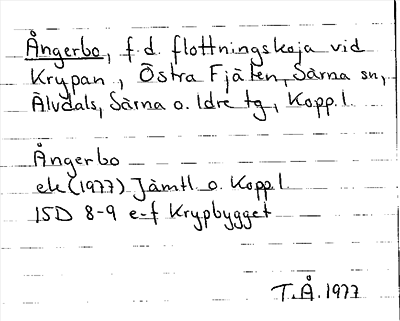 Ångerbo, f.d. flottningskoja vid
Krypan, Östra Fjäten, Särna sn,
Älvdals, Särna o. Idre tg, Kopp.l.
Ångerbo
ek (1977) Jämtl o. Kopp.l
15D 8-9 e-f Krypbygget
T.Å. 1977